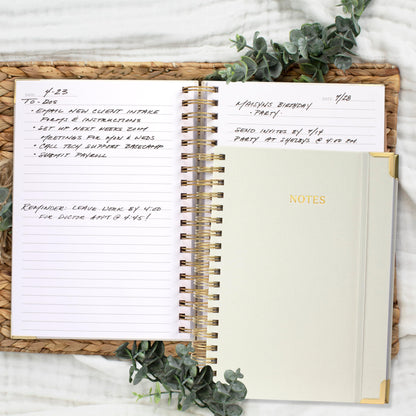 DATE 4-23
TO-DOS
• EMAIL NEW CLIENT INTAKE
FORMS & INSTRUCTIONS
• SET UP NEXT WEEKS ZOOM
MEETINGS FOR MON & WEDS
• CALL TECH SUPPORT BASECAMP
• SUBMIT PAYROLL
REMINDER: LEAVE WORK BY 4:00
FOR DOCTOR APPT @ 4:45!
DATE 4/28
MAISYNS BIRTHDAY
• PARTY
SEND INVITES BY 7/14
PARTY AT SHELBYS @ 4:00 PM
NOTES